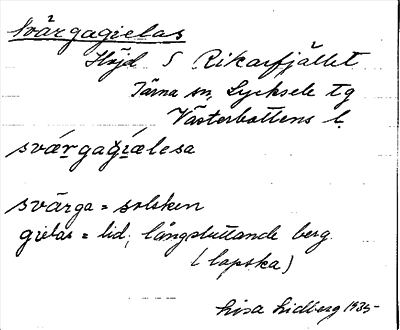 Svärgagielas
Höjd S Rikarfjället
Tärna sn, Lycksele tg
Västerbottens l.
sværgagiælesa
svärga = solsken
gielas = lid, långsluttande berg
(lapska)
Lisa Lidberg 1935-